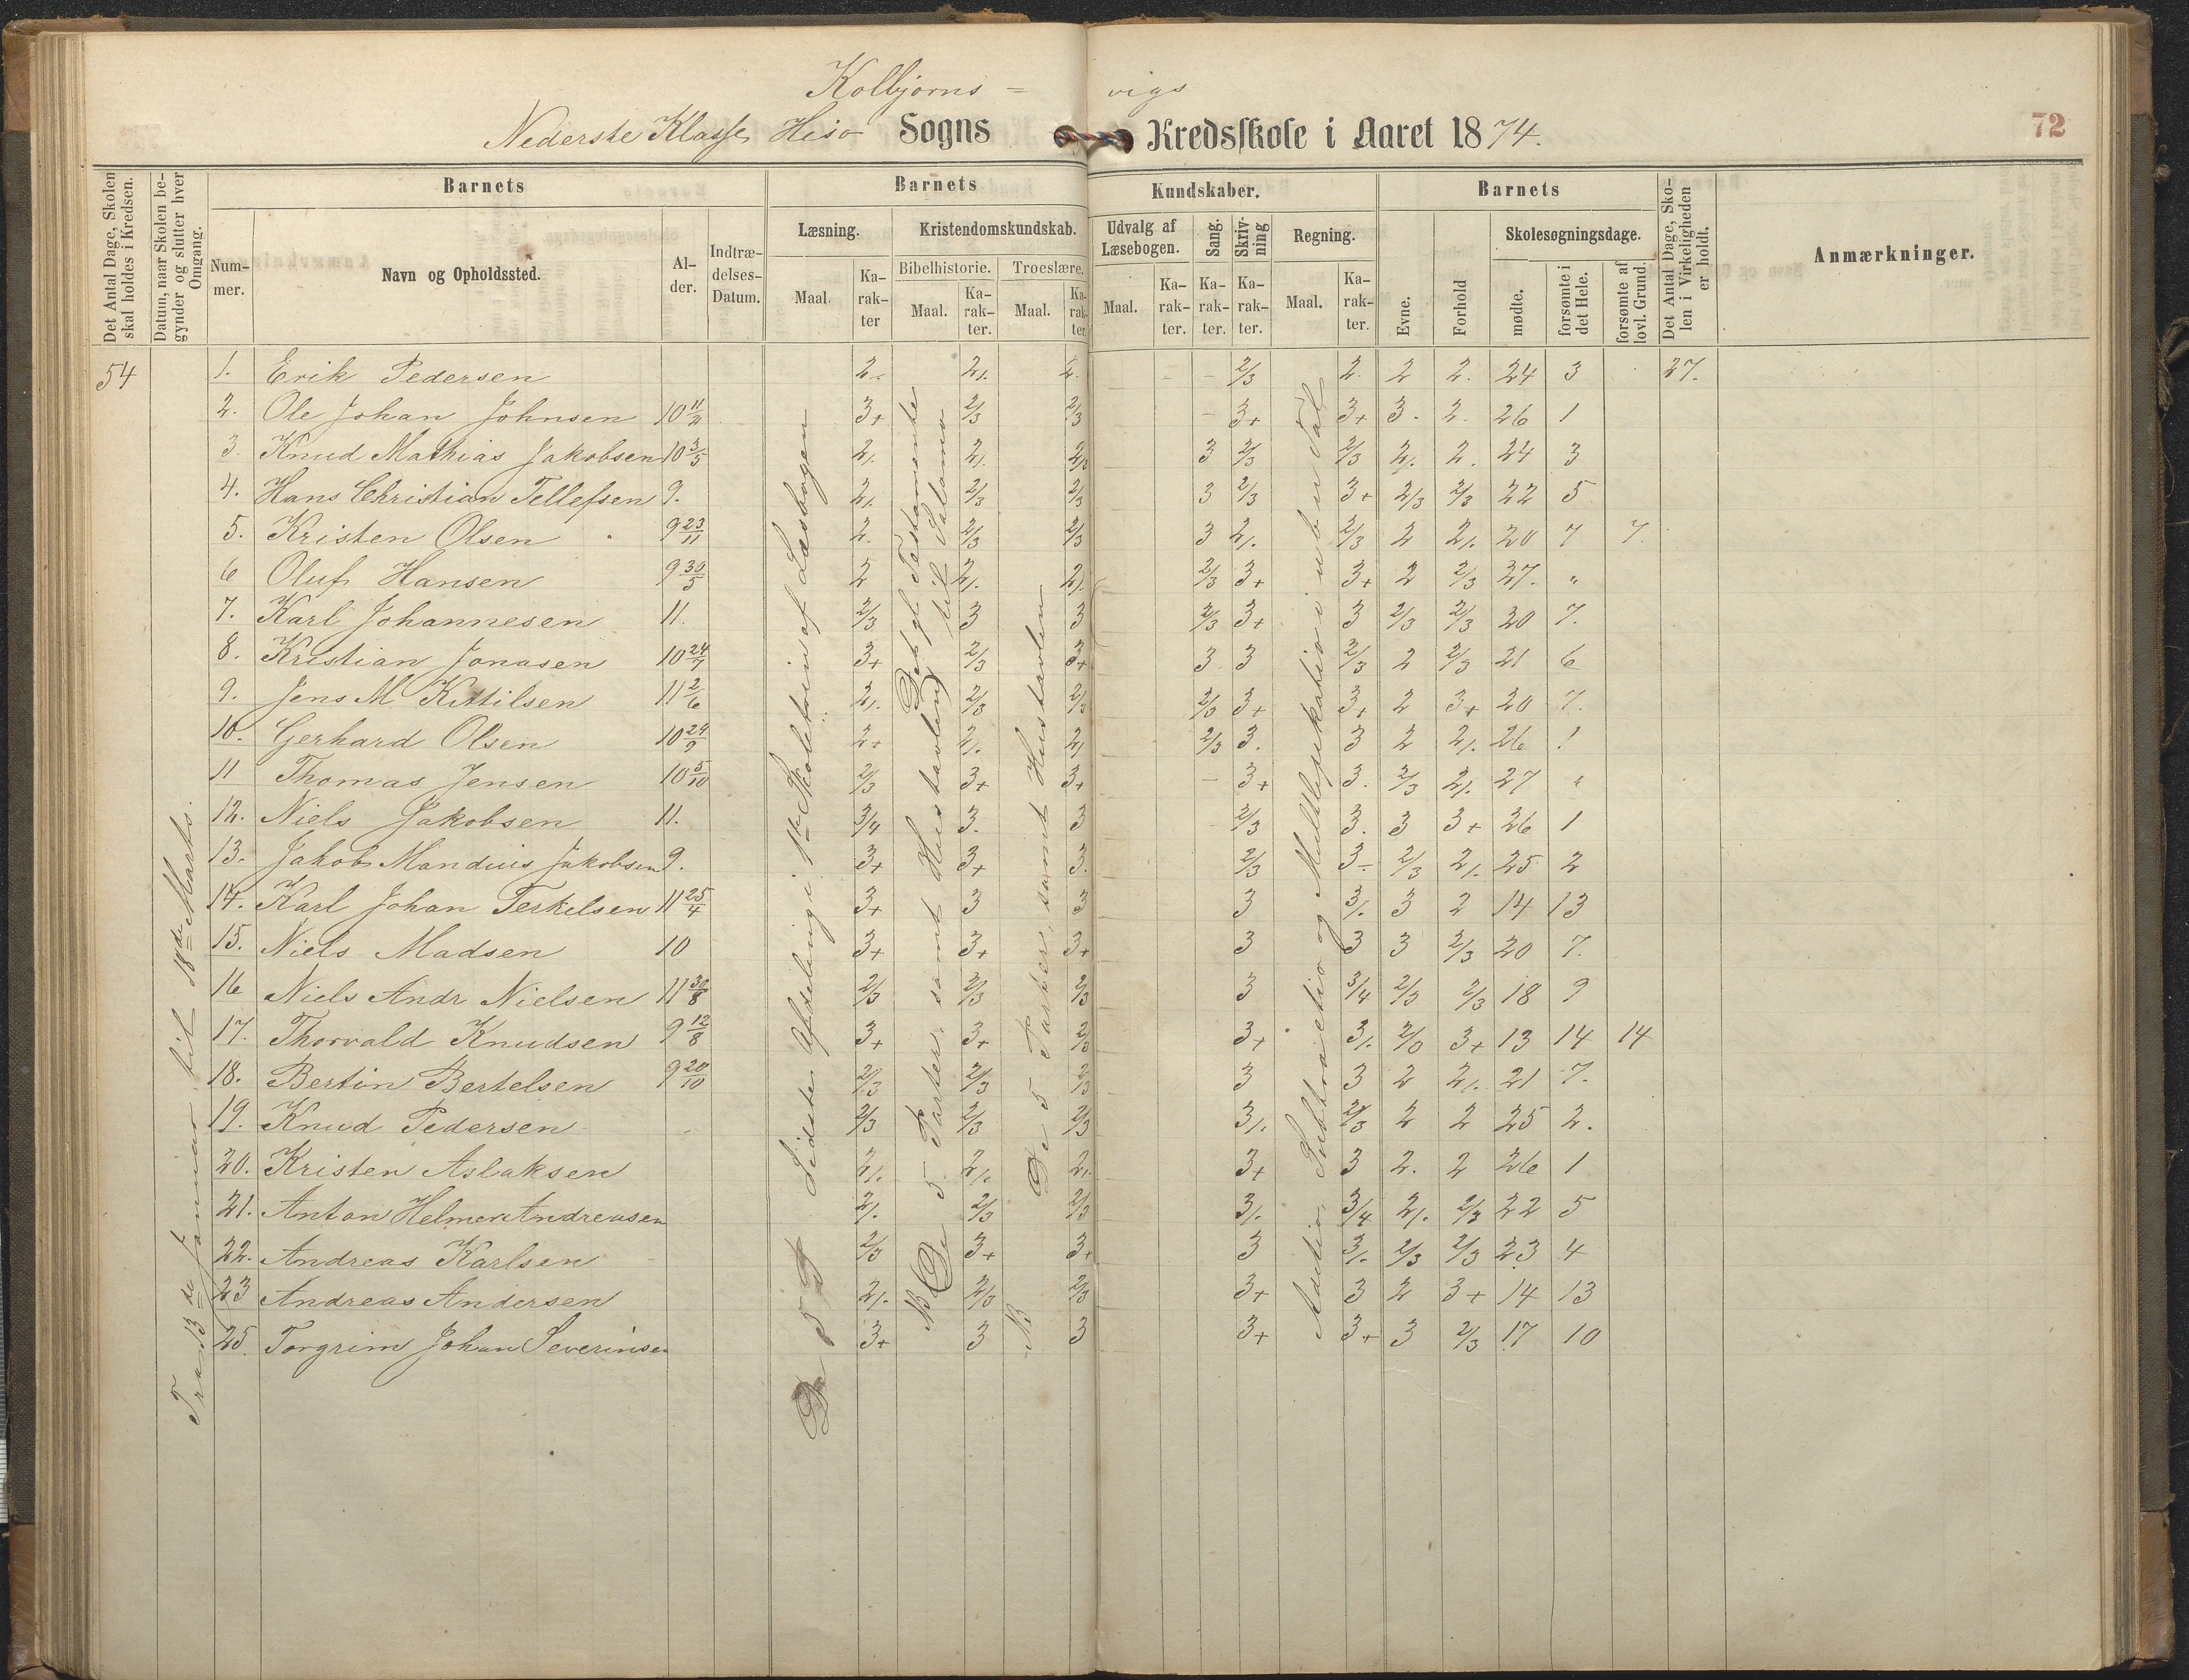 Kolbjørns = vigs
Nederste Klasse, Hisø Sogns Kredsskole i Aaret 1874.
72
Det Antal Dage, Skolen skal holdes i Kredsen.
Datum, naar Skolen begynder og slutter hver Omgang.
Barnets
Nummer.
Navn og Opholdssted.
Alder.
Indtrædelses-Datum.
Barnets Kundskaber.
Læsning.
Maal.
Karakter
Kristendomskundskab.
Bibelhistorie.
Maal.
Karakter.
Troeslære.
Maal.
Karakter.
Udvalg af Læsebogen.
Maal.
Karakter.
Sang.
Karakter.
Skrivning
Karakter.
Regning.
Maal.
Karakter.
Barnets
Evne.
Forhold
Skolesøgningsdage.
mødte.
forsømte i det Hele.
forsømte af lovl. Grund.
Det Antal Dage, Skolen i Virkeligheden er holdt.
Anmærkninger.
54
Fra 13de Januar til 18de Marts.
Sidste Afdeling i 1ste Skoletrin af Læsebogen
De 5 Parter, samt Hustavlen
Det gl. Testamente til Salomo
NB De 5 Parter, samt Hustavlen
Addition, Subtraction og Multiplikation i uben. Tal
1. Erik Pedersen 2. 2/. 2. 2/3 2. 2 2. 24 3 27.
2. Ole Johan Johnsen 10 11/2 3+ 2/3 2/3 3+ 3+ 3. 2. 26 1
3. Knud Mathias Jakobsen 10 3/5 2/. 2/. 2/3 3 2/3 2/3 2/. 2. 24 3
4. Hans Christian Tellefsen 9. 2/. 2/3 2/3 3 2/3 3+ 2/3 2/3 22 5
5. Kristen Olsen 9 23/11 2. 2/3 2/3 3 2/. 2/3 2 2/. 20 7 7.
6 Oluf Hansen 9 30/5 2 2/. 2/. 2/3 3+ 3+ 2 2/3 27. "
7. Karl Johannesen 11. 2/3 3 3 2/3 3+ 3 2/3 2/3 20 7.
8. Kristian Jonasen 10 24/7 3+ 2/3 3+ 3 3 2/3 2 2/3 21 6
9. Jens M Kittilsen 11 2/6 2/. 2/3 2/3 2/3 3+ 3+ 2 3+ 20 7.
10. Gerhard Olsen 10 24/9 2+ 2/. 2/ 2/3 3. 3 2 2/. 26 1
11 Thomas Jensen 10 5/10 2/3 3+ 3+ 3+ 3. 2/3 2/. 27 "
12. Niels Jakobsen 11. 3/4 3. 3 2/3 3. 3 3+ 26 1
13. Jakob Mandius Jakobsen 9. 3+ 3+ 3. 2/3 3- 2/3 2/. 25 2
14. Karl Johan Terkelsen 11 25/4 3+ 3 3 3 3/. 3 2 14 13
15. Niels Madsen 10 3+ 3+ 3+ 3 3 3 2/3 20 7.
16 Niels Andr Nielsen 11 30/8 2/3 2/3 2/3 3 3/4 2/3 2/3 18 9
17. Thorvald Knudsen 9 12/8 3+ 3+ 2/3 3+ 3/. 2/3 3+ 13 14 14
18. Bertin Bertelsen 9 20/10 2/3 2/3 2/3 3 3 2 2/. 21 7.
19. Knud Pedersen 2/3 2/3 2/3 3/. 2/3 2 2 25 2.
20. Kristen Aslaksen 2/. 2/. 2/. 3+ 3 2. 2 26 1
21. Anton Helmer Andreasen 2/. 2/3 2/3 3/. 3/4 2/. 2/3 22 5
22. Andreas Karlsen 2/3 3+ 3+ 3 3/. 2/3 2/3 23 4
23 Andreas Andersen 2/. 2/3 2/3 3+ 3 2 3+ 14 13
25. Torgrim Johan Severinsen 3+ 3 3 3+ 3+ 3 2/3 17 10